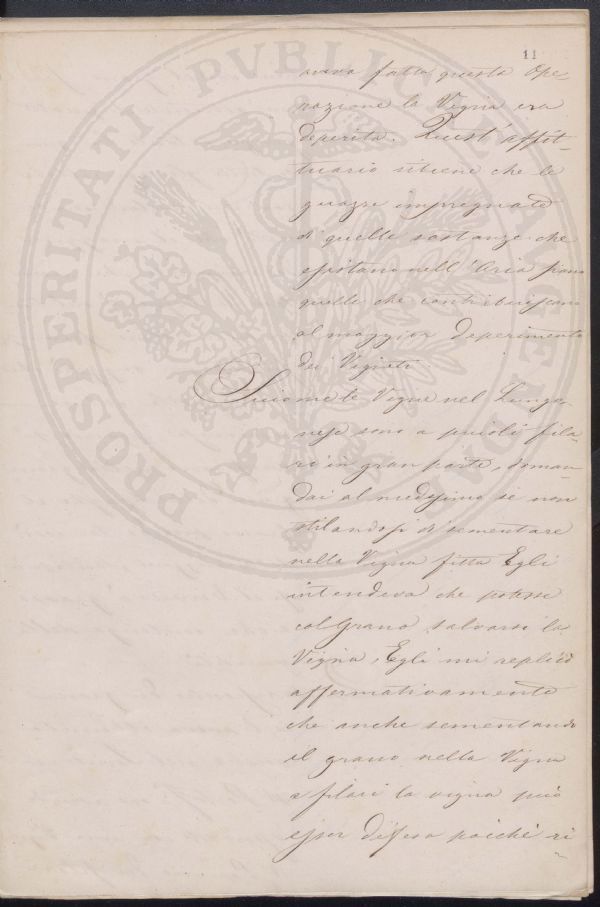 11
aveva fatta questa Ope-
razione la Vigna era
deperita. Quest'affit-
tuario ritiene che le
guazze impregnate
di quelle sostanze che
esistano nell'Aria siano
quelle che contribuiscano
al maggior deperimento
dei Vigneti
Siccome le Vigne nel Lugo-
nese sono a piccoli fila-
ri in gran parte, doman-
dai al medesimo se non
stilandosi di sementare
nella Vigna fitta Egli
intendeva che potesse
col Grano salvarsi la
Vigna, Egli mi replicò
affermativamente
che anche sementando
il grano nella Vigna
a filari la vigna può
esser difesa poiché ri
PROSPERITATI PVBLICAE AVGENDAE